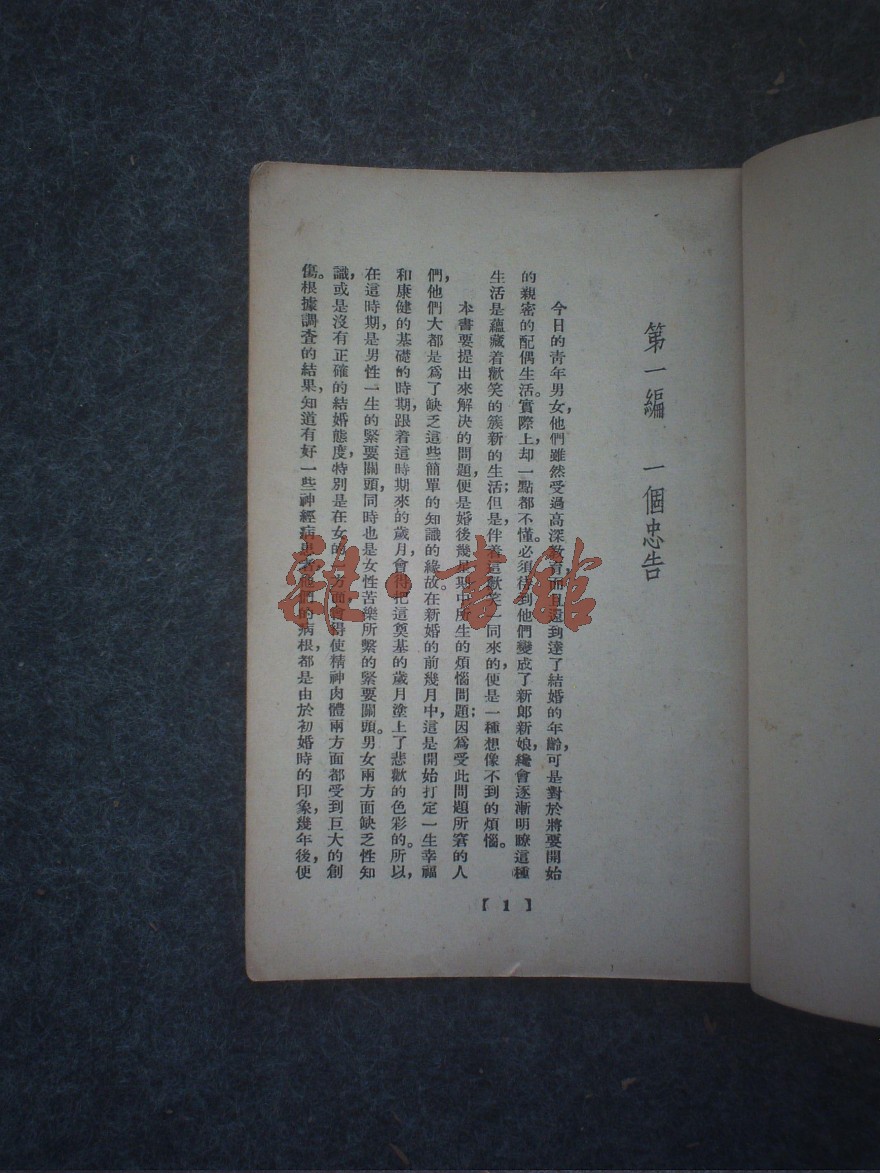 第一編　一個忠告
今日的靑年男女，他們雖然受過高深教育，而且還到達了結婚的年齡，可是對於將要開始
的親密的配偶生活。實際上，却一點都不懂。必須待到他們變成了新郎新娘，纔會逐漸明瞭這種
生活是蘊藏着歡笑的簇新的生活；但是，伴着這歡笑一同來的，便是一種想像不到的煩惱。
本書要提出來解決的問題，便是婚後幾星期中所生的煩惱問題；因爲受此問題所窘的人
們，他們大都是爲了缺乏這些簡單的知識的緣故。在新婚的前幾月中，這是開始打定一生幸福
和康健的基礎的時期，跟着這時期來的歲月，會得把這奠基的歲月塗上了悲歡的色彩的。所以，
在這時期，是男性一生的緊要關頭，同時也是女性苦樂所繫的緊要關頭。男女兩方面缺乏性知
識，或是沒有正確的結婚態度，特別是在女的一方面，會得使精神肉體兩方面都受到巨大的創
傷。根據調查的結果，知道有好一些神經病患者，他們的病根，都是由於初婚時的印象，幾年後，便
【1】
雜·書館